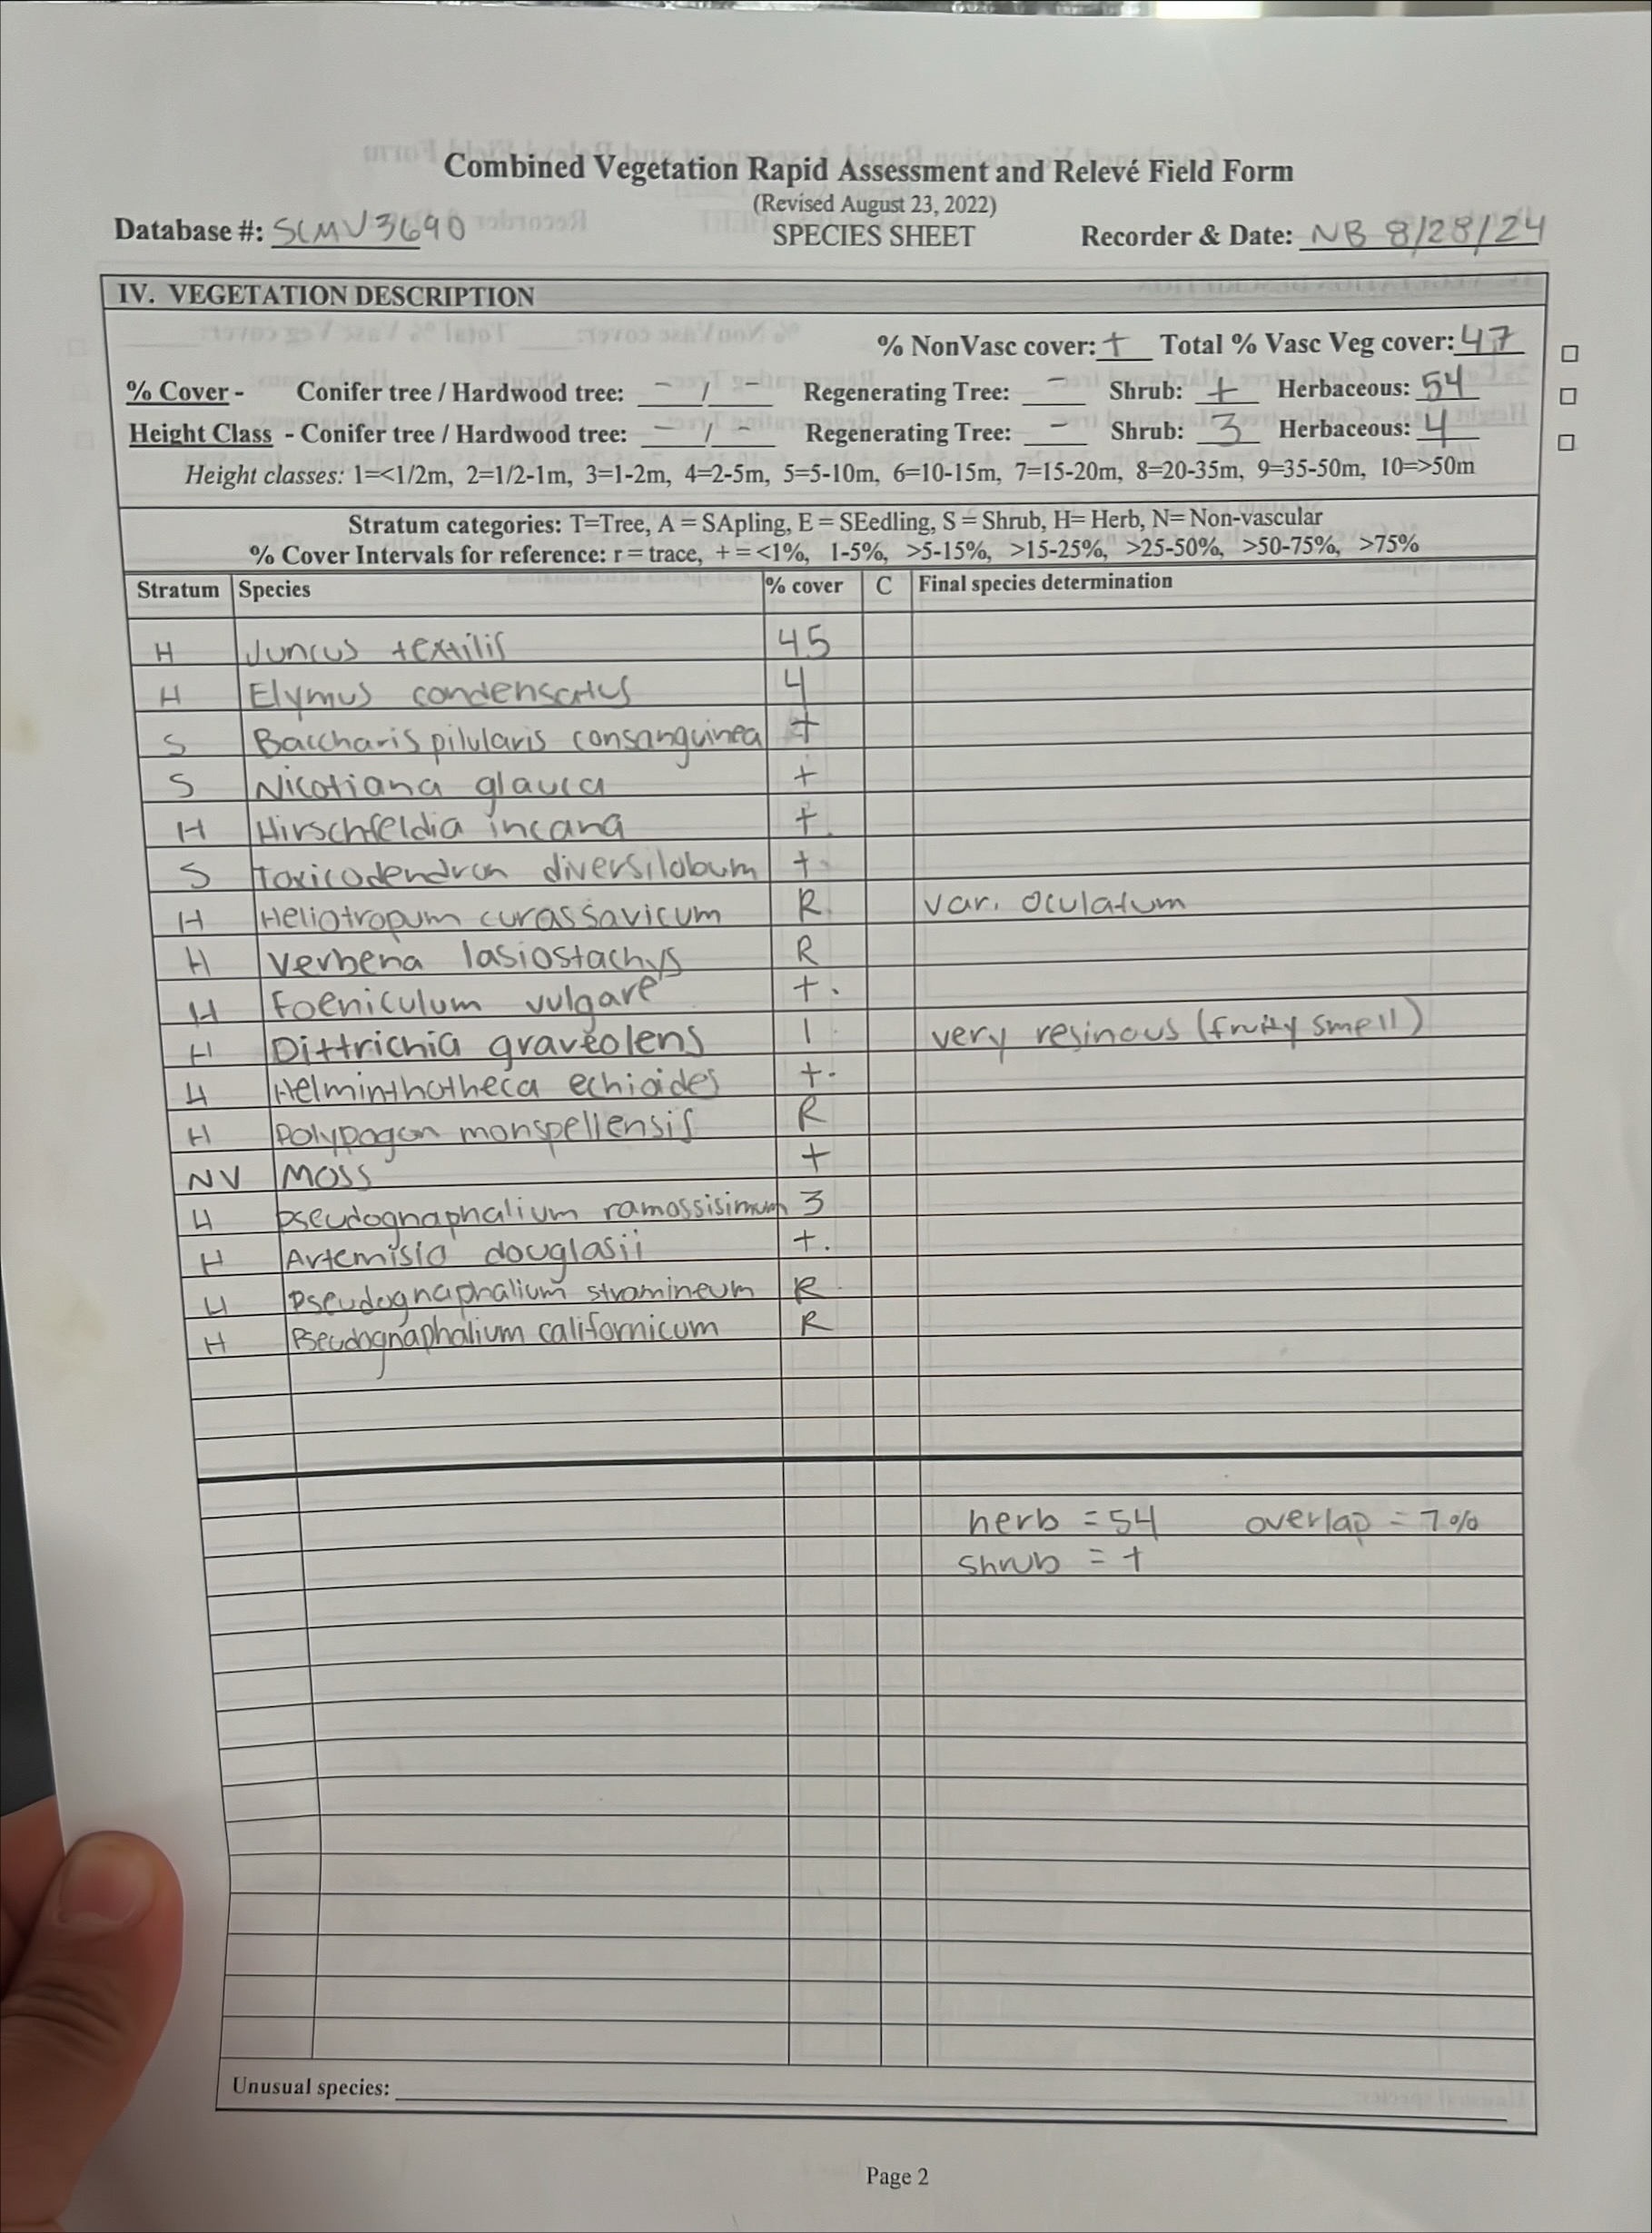 Combined Vegetation Rapid Assessment and Relevé Field Form
(Revised August 23, 2022)
Database #: SCMV3690 SPECIES SHEET Recorder & Date: NB 8/28/24
IV. VEGETATION DESCRIPTION
% NonVasc cover: + Total % Vasc Veg cover: 47
% Cover - Conifer tree / Hardwood tree: - / - Regenerating Tree: - Shrub: + Herbaceous: 54
Height Class - Conifer tree / Hardwood tree: - / - Regenerating Tree: - Shrub: 3 Herbaceous: 4
Height classes: 1=<1/2m, 2=1/2-1m, 3=1-2m, 4=2-5m, 5=5-10m, 6=10-15m, 7=15-20m, 8=20-35m, 9=35-50m, 10=>50m
Stratum categories: T=Tree, A = SApling, E = SEedling, S = Shrub, H= Herb, N= Non-vascular
% Cover Intervals for reference: r = trace, + = <1%, 1-5%, >5-15%, >15-25%, >25-50%, >50-75%, >75%
Stratum Species % cover C Final species determination
H Juncus textilis 45
H Elymus condensatus 4
S Baccharis pilularis consanguinea +
S Nicotiana glauca +
H Hirschfeldia incana +
S toxicodendron diversilobum +
H Heliotropum curassavicum R var. oculatum
H Verbena lasiostachys R
H Foeniculum vulgare +
H Dittrichia graveolens 1 very resinous (fruity smell)
H Helminthotheca echioides +
H Polypogon monspellensis R
NV MOSS +
H pseudognaphalium ramossisimum 3
H Artemisia douglasii +
H Pseudognaphalium stramineum R
H Pseudognaphalium californicum R
herb = 54 overlap = 7%
shrub = +
Unusual species:
Page 2